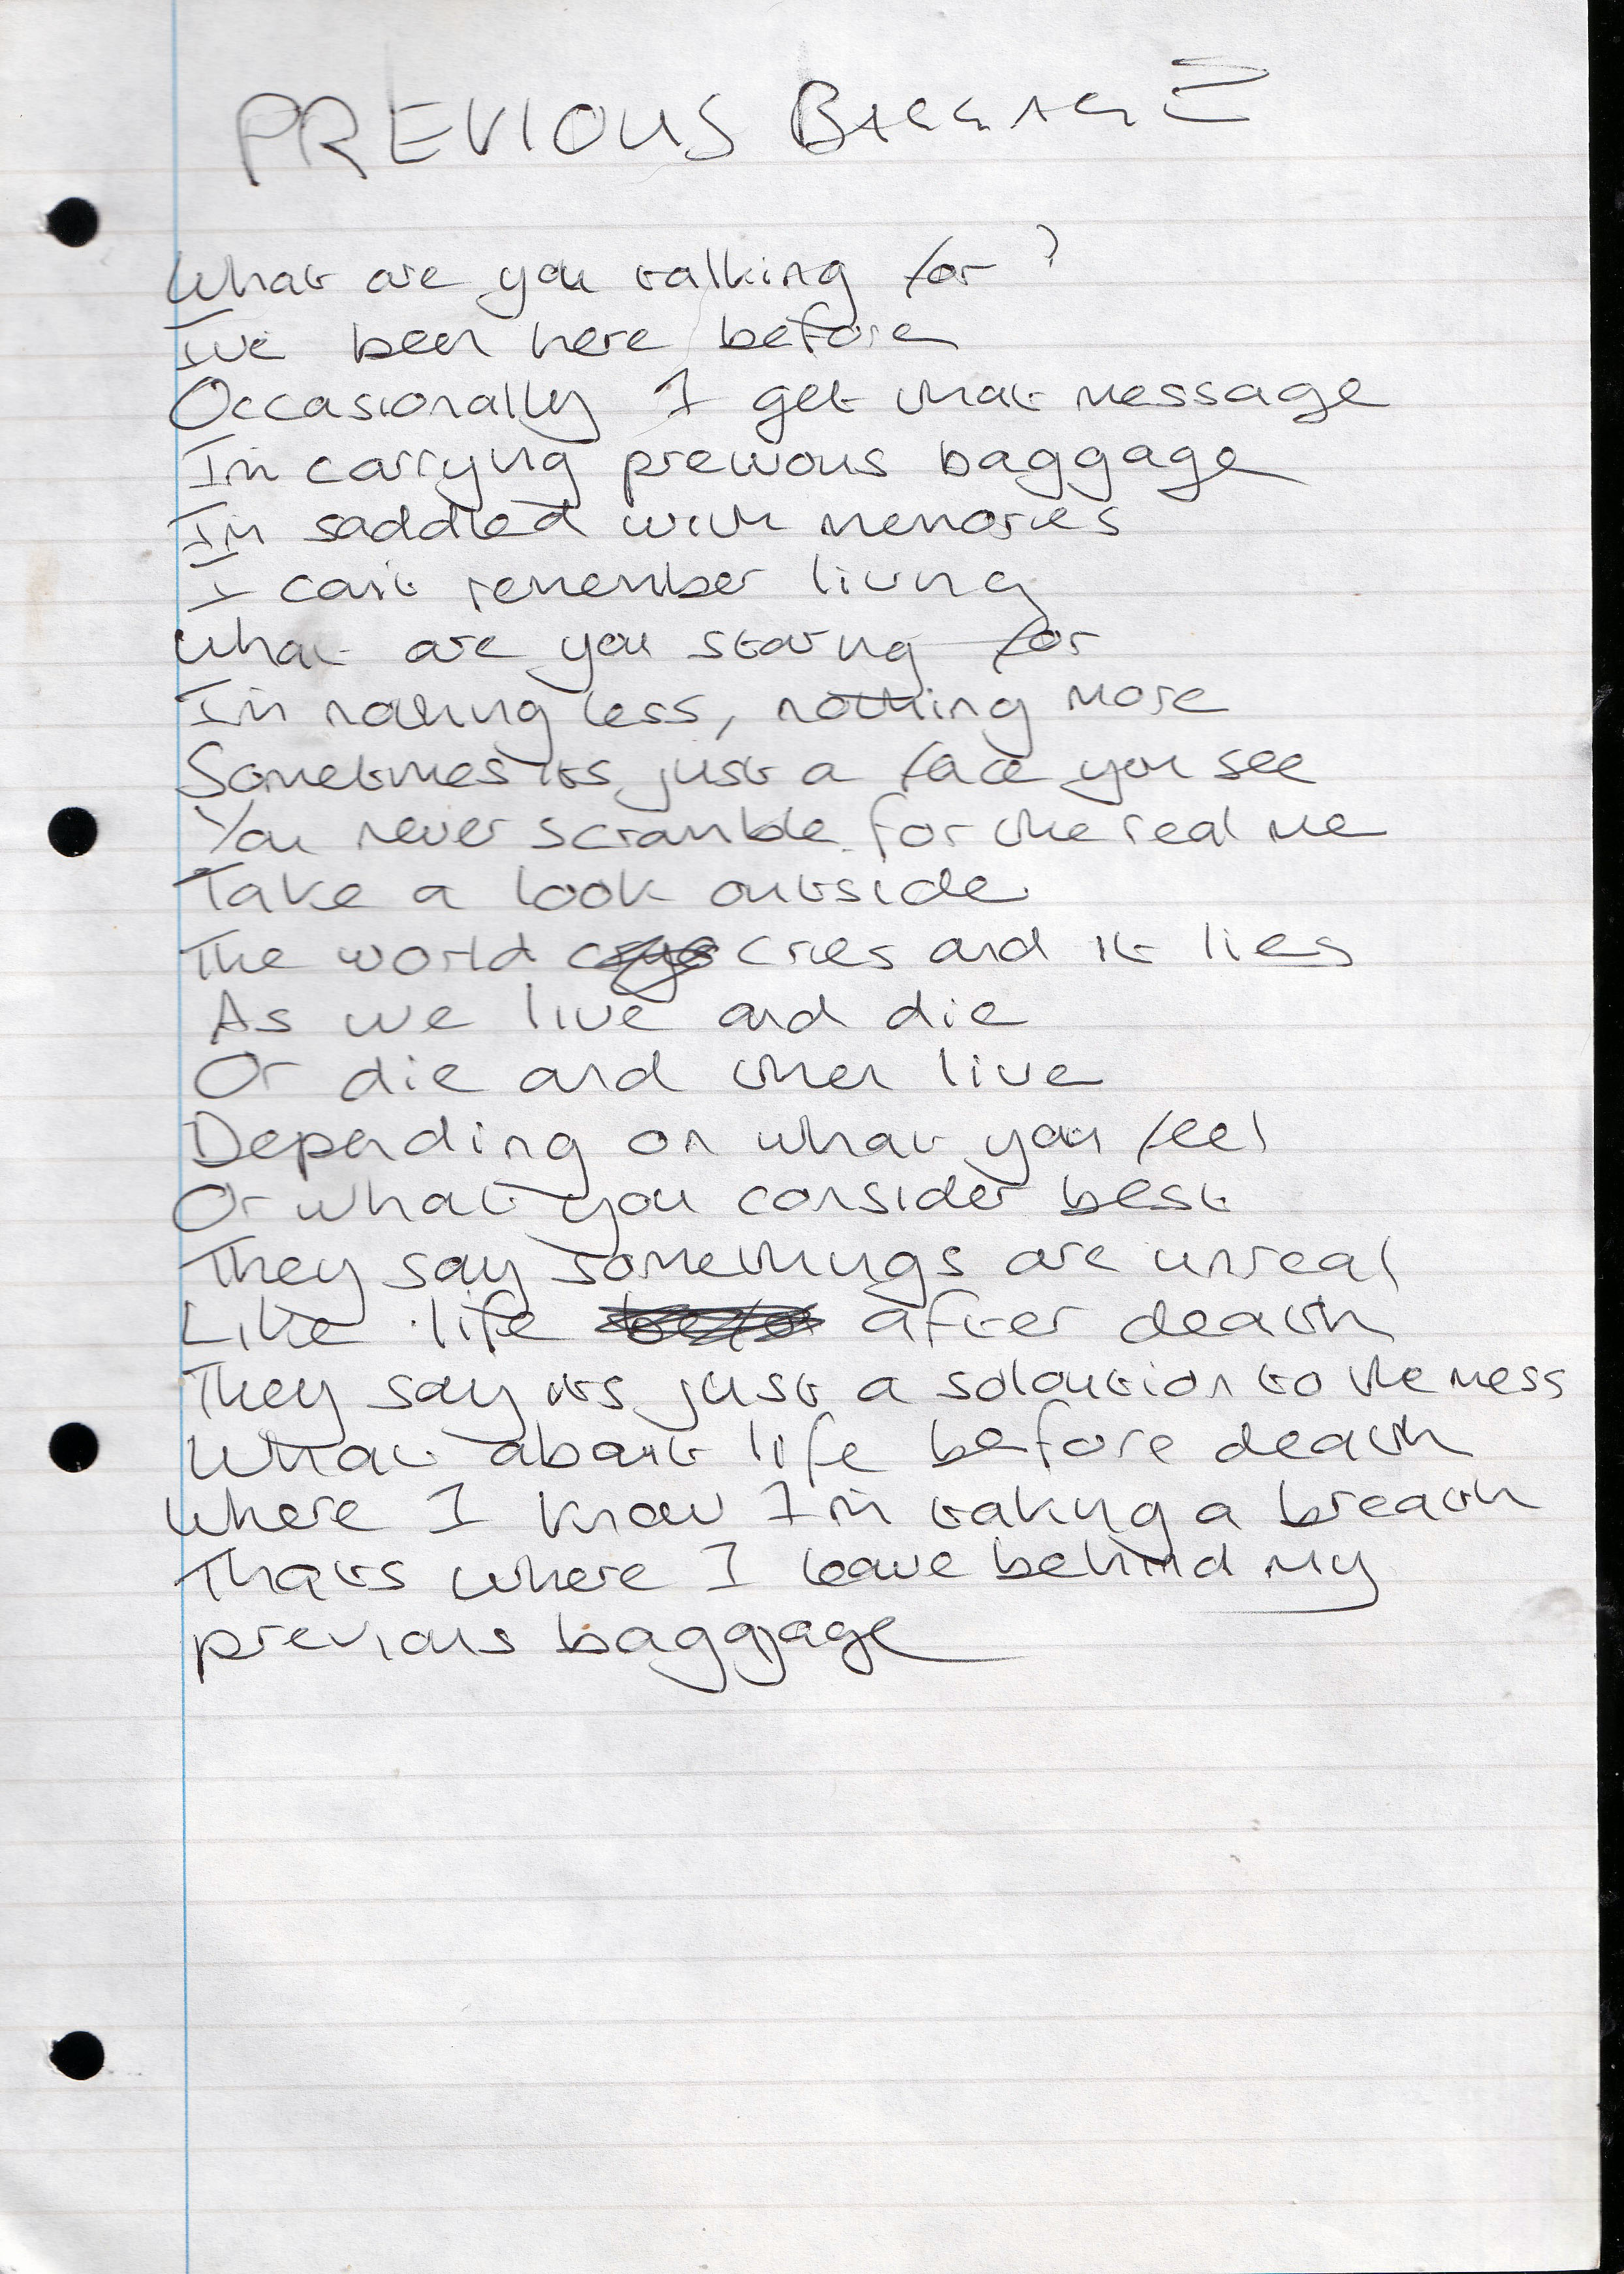 PREVIOUS BAGGAGE
What are you talking for?
I've been here before
Occasionally I get that message
I'm carrying previous baggage
I'm saddled with memories
I can't remember living
What are you staring for
I'm nothing less, nothing more
Sometimes its just a face you see
You never scramble for the real me
Take a look outside
The world cries and it lies
As we live and die
Or die and then live
Depending on what you feel
Or what you consider best
They say somethings are unreal
Like life after death
They say its just a soloution to the mess
What about life before death
Where I know I'm taking a breath
Thats where I leave behind my
previous baggage